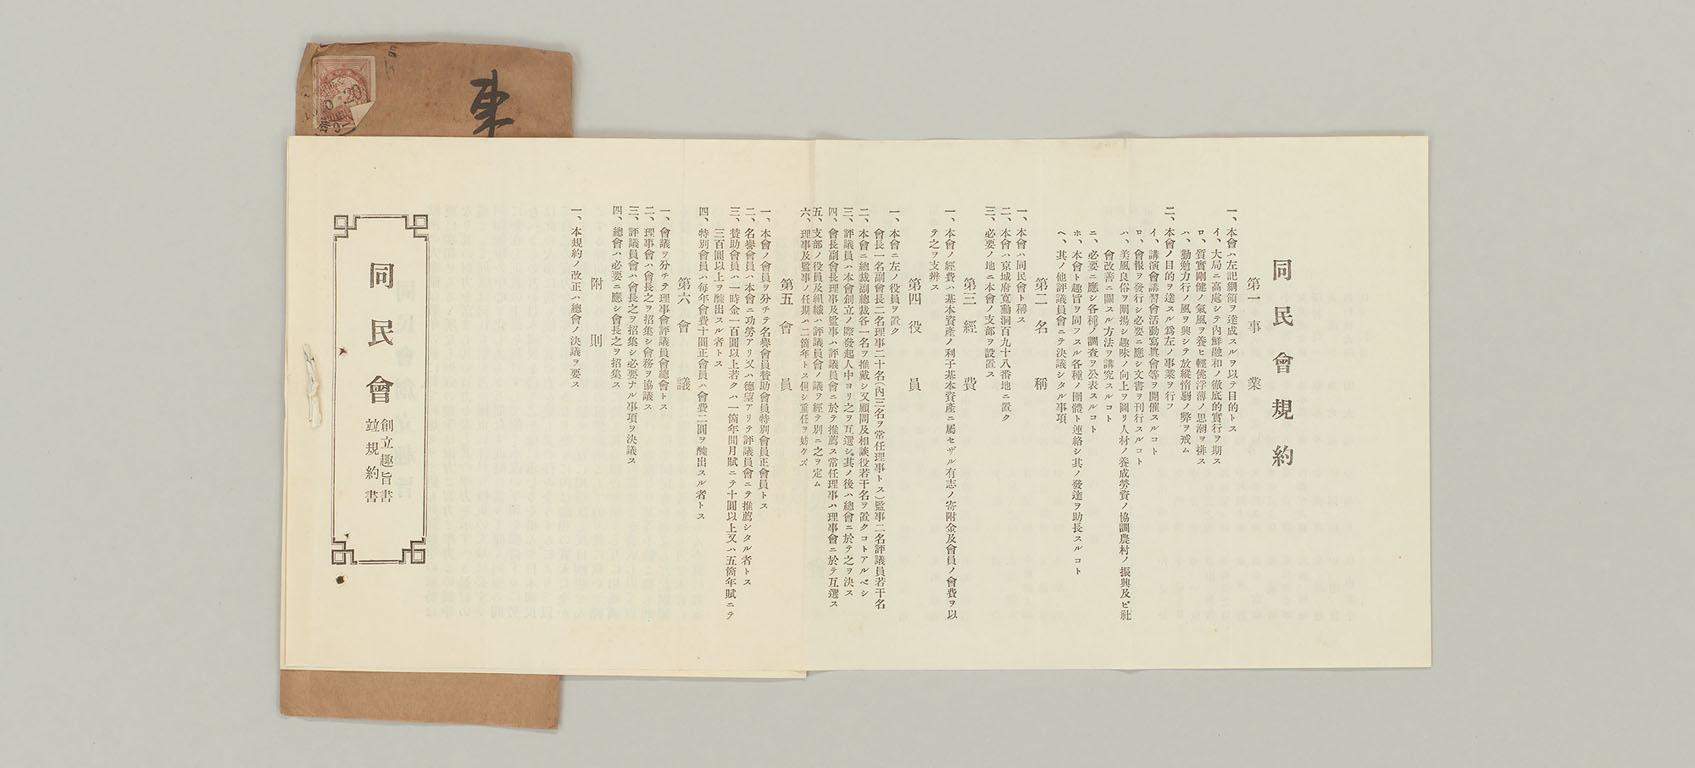 東
20
同民會規約
第一 事業
一、本會ハ左記綱領ヲ達成スルヲ以テ目的トス
イ、大局ニ高處シテ內鮮融和ノ徹底的實行ヲ期ス
ロ、質實剛健ノ氣風ヲ養ヒ輕佻浮薄ノ思潮ヲ排ス
ハ、勤勉力行ノ風ヲ興シテ放縱惰弱ノ弊ヲ戒ム
二、本會ノ目的ヲ達スル爲左ノ事業ヲ行フ
イ、講演會講習會活動寫眞會等ヲ開催スルコト
ロ、會報ヲ發行シ必要ニ應シ文書ヲ刊行スルコト
ハ、美風良俗ヲ闡揚シ趣味ノ向上ヲ圖リ人材ノ養成勞資ノ協調農村ノ振興及ビ社
會改善ニ關スル方法ヲ講究スルコト
ニ、必要ニ應シ各種ノ調査ヲ公表スルコト
ホ、本會ト趣旨ヲ同フスル各種ノ團體ト連絡シ其ノ發達ヲ助長スルコト
ヘ、其ノ他評議員會ニテ決議シタル事項
第二 名稱
一、本會ハ同民會ト稱ス
二、本會ハ京城府寬勳洞百九十八番地ニ置ク
三、必要ノ地ニ本會ノ支部ヲ設置ス
第三 經費
一、本會ノ經費ハ基本資產ノ利子基本資產ニ屬セザル有志ノ寄附金及會員ノ會費ヲ以
テ之ヲ支辨ス
第四 役員
一、本會ニ左ノ役員ヲ置ク
會長一名副會長二名理事二十名(內三名ヲ常任理事トス)監事二名評議員若干名
二、本會ニ總裁副總裁各一名ヲ推戴シ又顧問及相談役若干名ヲ置クコトアルベシ
三、評議員ハ本會創立ノ際發起人中ヨリ之ヲ互選シ其ノ後ハ總會ニ於テ之ヲ決ス
四、會長副會長理事及監事ハ評議員會ニ於テ推薦ス常任理事ハ理事會ニ於テ互選ス
五、支部ノ役員及組織ハ評議員會ノ議ヲ經テ別ニ之ヲ定ム
六、理事及監事ノ任期ハ二箇年トス但シ重任ヲ妨ケズ
第五 會員
一、本會ノ會員ヲ分チテ名譽會員贊助會員特別會員正會員トス
二、名譽會員ハ本會ニ功勞アリ又ハ德望アリテ評議員會ニテ推薦シタル者トス
三、贊助會員ハ一時金一百圓以上若クハ一箇年間月賦ニテ十圓以上又ハ五箇年賦ニテ
三百圓以上ヲ醵出スル者トス
四、特別會員ハ每年會費十圓正會員ハ會費二圓ヲ醵出スル者トス
第六 會議
一、會議ヲ分チテ理事會評議員會總會トス
二、理事會ハ會長之ヲ招集シ會務ヲ協議ス
三、評議員會ハ會長之ヲ招集シ必要ナル事項ヲ決議ス
四、總會ハ必要ニ應シ會長之ヲ招集ス
附則
一、本規約ノ改正ハ總會ノ決議ヲ要ス
同民會
創立趣旨書
竝規約書